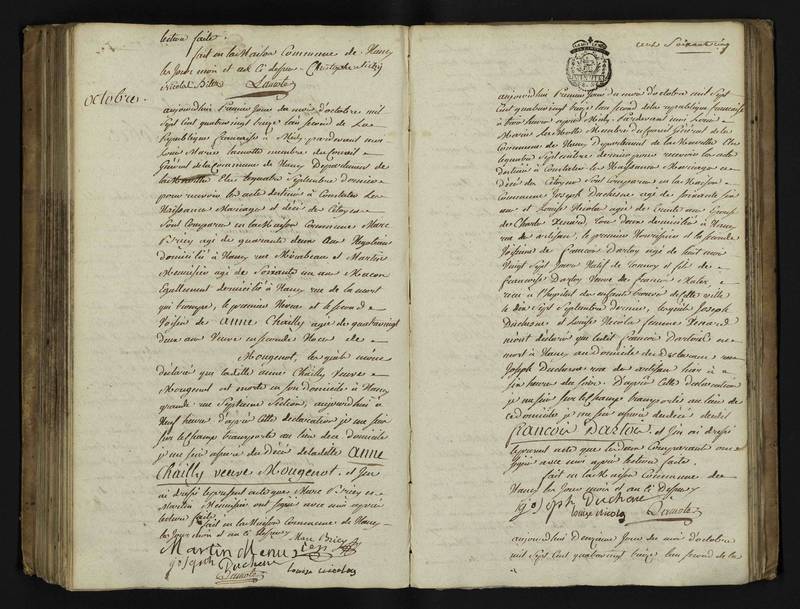 lecture faite.
fait en la Maison Commune de Nancy
les Jour mois et an ci dessus Christophe
Nicolas Lamotte
Octobre.
aujourdhui Premier Jour du mois d'octobre mil
Sept Cent quatrevingt treize l'an second de La
Republique francaise à Midy, pardevant moi
Louis Marie Lamotte membre du Conseil
Général de la Commune de Nancy Departement de
la Meurthe Elu le quatre Septembre dernier
pour recevoir les acte destiné à Constater Les
Naissance Mariage et décés des Citoyens
Sont Comparus en la Maison Commune Marc
Bricy agé de quarante deux ans
domicilié à Nancy rue Mirabeau et Martin
Menussier agé de Soixante un ans Macon
Egallement domicilié à Nancy rue de la
qui trompe, le premier Neveu et le second
Voisin de anne Chailly agée de quatrevingt
deux ans Veuve en seconde Noces de
Mougenot, lesquels m'ont
déclaré que ladite anne Chailly Veuve
Mougenot est morte en son domicile à Nancy
grande rue Septieme Section, aujourd'hui à
Neuf heures d'après Cette declaration je me suis
sur le Champ transporté au lieu dece domicile
je me suis assuré du Décés de ladite anne
Chailly veuve Mougenot. et J'en
ai dressé le present acte que Marc Bricy et
Martin Menussier ont signé avec moi après
lecture faite
fait en la Maison Commune de Nancy
les Jour mois et an ci dessus Marc Bricy
Martin Menu
Joseph Duchene
Lamotte louise nicolas
cent Soixante cinq
aujourdhui Premier Jour du mois d'octobre mil Sept
Cent quatrevingt treize l'an second de la republique francaise
à trois heures après Midy, Pardevant moi Louis
Marie Lamotte Membre du Conseil Général de la
Commune de Nancy Departement de la Meurthe Elu
le quatre Septembre dernier pour recevoir les acte
destiné à Constater les Naissance Mariage et
Décés des Citoyens Sont comparus en la Maison
Commune Joseph Duchesne agé de soixante
ans et Louise Nicolas agée de trente ans Epouse
de Charle Renard, tous deux domicilié à Nancy
rue des artisans, le premier Nourrissier et la seconde
Voisine de francois Dartoy agé de huit mois
Vingt Sept Jours Natif de et fils de
francoise Dartoy Veuve de francois
recu à l'hopital des enfants trouvés de cette ville
le dix Sept Septembre dernier, lesquels Joseph
Duchesne et Louise Nicolas femme Renard
m'ont déclaré que ledit francois Dartois est
mort à Nancy au domicile du Declarant
Joseph Duchesne rue des artisans hier à
six heures du soir. D'après Cette declaration
je me suis sur le Champ transporté au lieu de
ce domicile je me suis assuré du décés dudit
francois Dartois. et J'en ai dressé
le present acte que les deux Comparants ont
signé avec moi après lecture faite.
fait en la Maison Commune de
Nancy les Jour mois et an ci Dessus
Joseph Duchene
louise nicolas Lamotte
aujourdhui Deuxieme Jour du mois d'octobre
mil Sept Cent quatrevingt treize l'an second de la